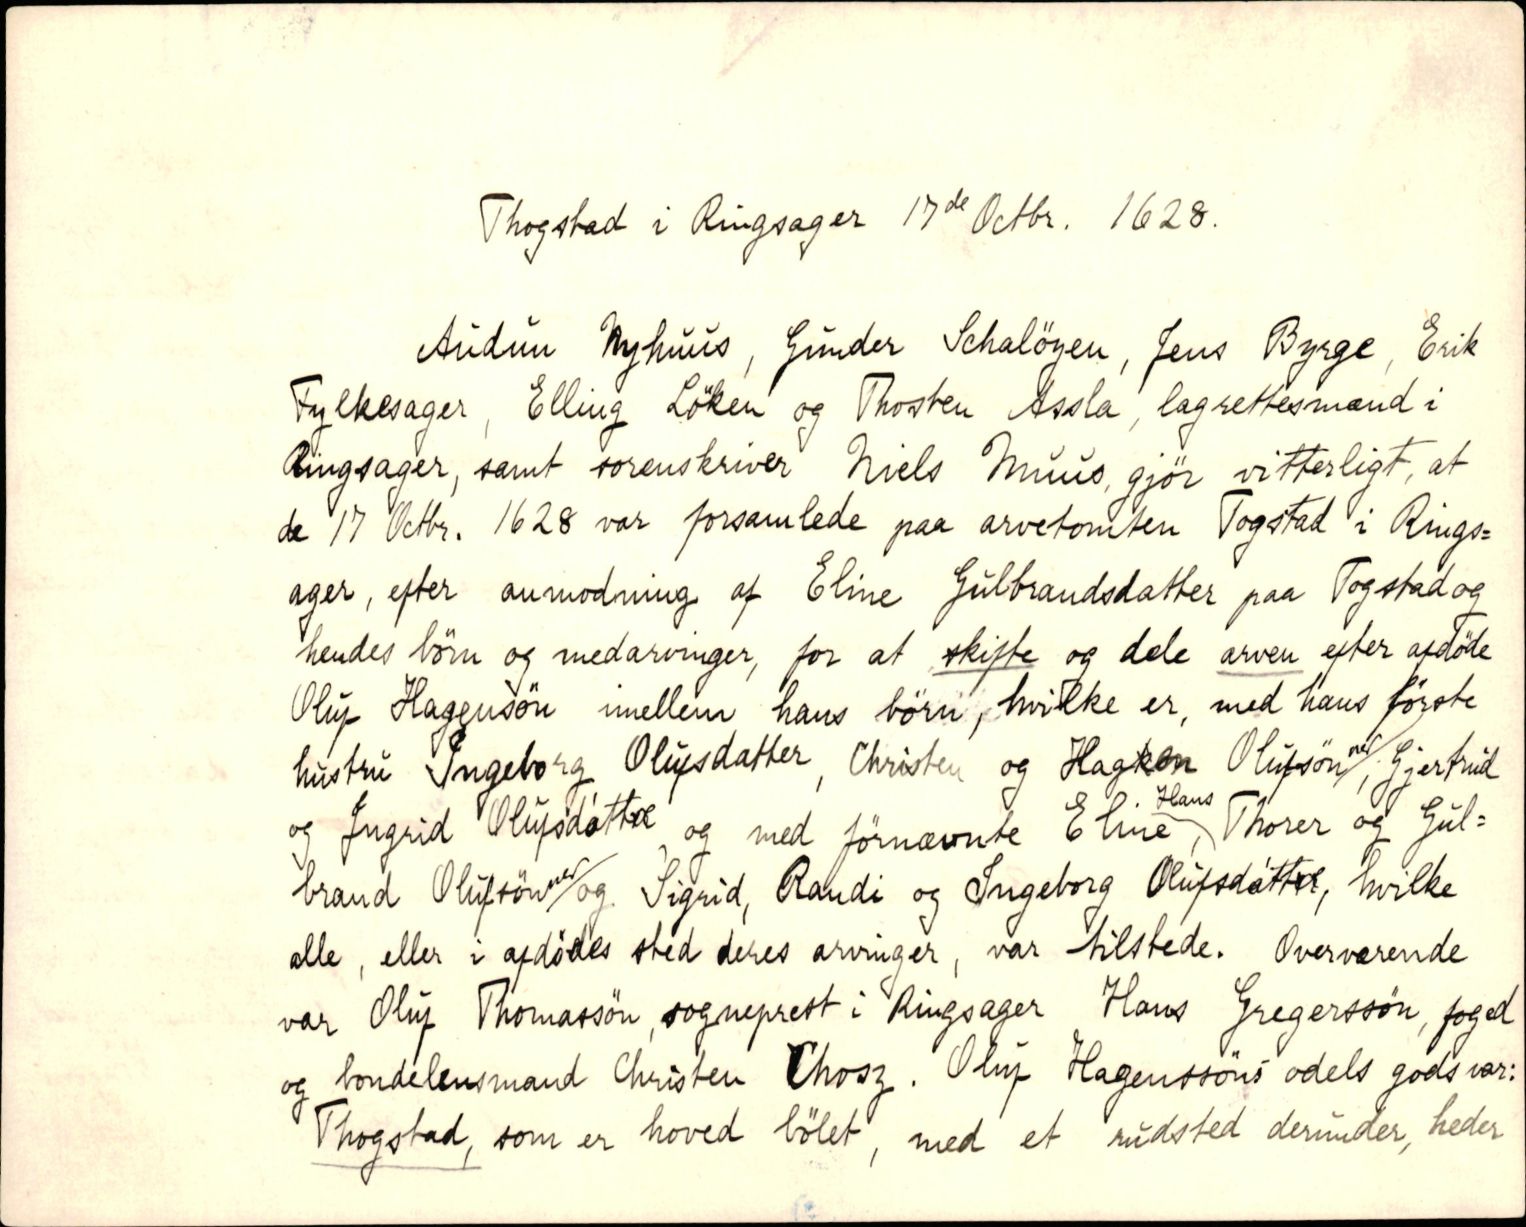 Thogstad i Ringsager 17de Octbr. 1628.
Audun Nyhuus, Gunder Schalöyen, Jens Byrge, Erik
Fylkesager, Elling Löken og Thosten Assla, lagrettesmænd i
Ringsager, samt sorenskriver Niels Muus, gjör vitterligt, at
de 17 Octbr. 1628 var forsamlede paa arvetomten Togstad i Rings=
ager, efter anmodning af Eline Gulbrandsdatter paa Togstad og
hendes börn og medarvinger, for at skifte og dele arven efter afdöde
Oluf Hagensön imellem hans börn, hvilke er, med hans förste
hustru Ingeborg Olufsdatter, Christen og Hagken Olufsönner, Gjertrud
og Ingrid Olufsdøttre, og med förnævnte Eline, Hans Thorer og Gul=
brand Olufsönner og Sigrid, Randi og Ingeborg Olufsdøttre, hvilke
alle, eller i afdödes sted deres arvinger, var tilstede. Overværende
var Oluf Thomassön, sogneprest i Ringsager Hans Gregerssön, foged
og bondelensmand Christen Chosz. Oluf Hagenssöns odels gods var:
Thogstad, som er hoved bölet, med et rudsted derunder, heder